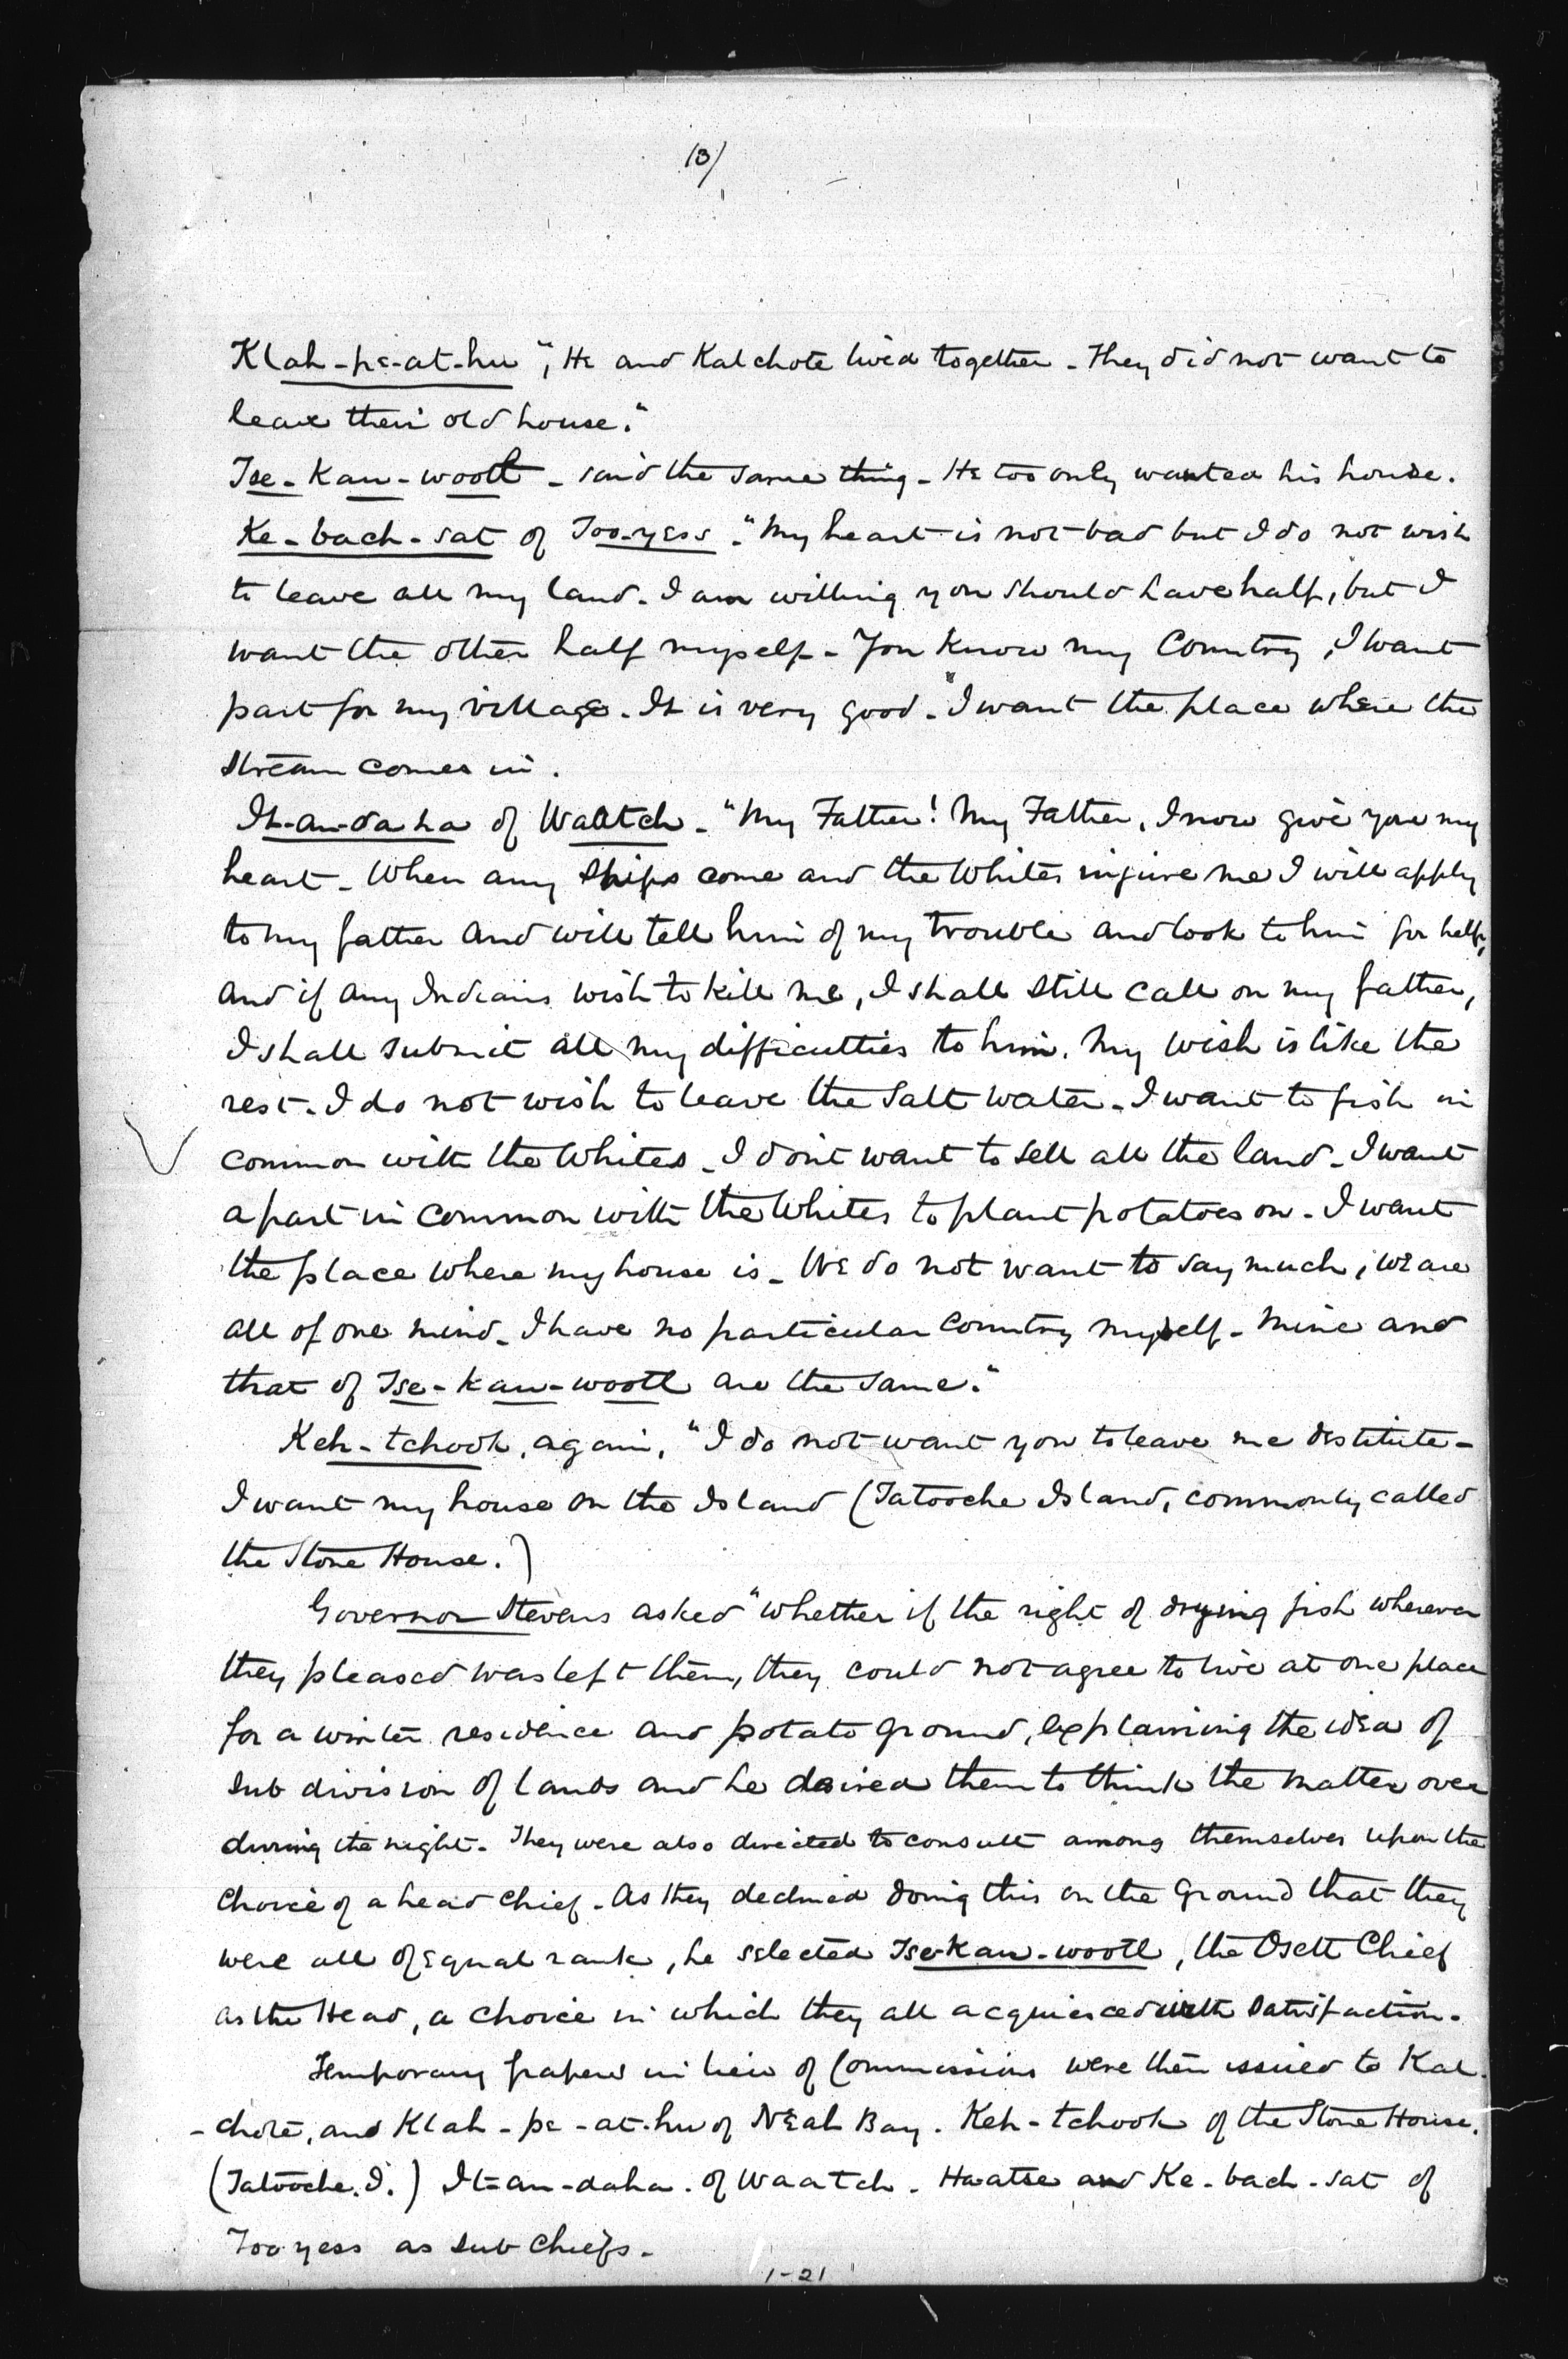 13/
Klah-pe-at-hu ", He and Kalchote lived together - They did not want to
leave their old house."
Tse-Kau-wootl - said the same thing - He too only wanted his house.
Ke-bach-sat of Too-yess - "My heart is not bad but I do not wish
to leave all my land - I am willing you should have half, but I
want the other half myself - You know my Country, I want
part for my village. It is very good - "I want the place where the
stream comes in.
It-an-da ha of Waatch - "My Father! My Father, I now give you my
heart - When any ships come and the Whites injure me I will apply
to my father and will tell him of my trouble and look to him for help,
and if any Indians wish to kill me, I shall still call on my father,
I shall submit all my difficulties to him. My wish is like the
rest - I do not wish to leave the Salt Water - I want to fish in
common with the Whites - I don't want to sell all the land - I want
a part in common with the Whites to plant potatoes on - I want
the place where my house is - We do not want to say much, we are
all of one mind - I have no particular Country myself - Mine and
that of Tse-kau-wootl are the same."
Keh-tchook, again, "I do not want you to leave me destitute -
I want my house on the Island (Tatooche Island, commonly called
the Stone House.)
Governor Stevens asked "whether if the right of drying fish wherever
they pleased was left them, they could not agree to live at one place
for a winter residence and potato ground, explaining the idea of
sub division of lands and he desired them to think the matter over
during the night - They were also directed to consult among themselves upon the
choice of a head chief - As they declined doing this on the Ground that they
were all of equal rank, he selected Tse-Kau-wootl, the Osett Chief
as the Head, a choice in which they all acquiesced with satisfaction -
Temporary papers in lieu of Commissions were then issued to Kal-
-chote, and Klah-pe-at-hu of Neah Bay. Keh-tchook of the Stone House.
(Tatooche. I.) It-an-daha. of Waatch - Haatse and Ke-bach-sat of
Too yess as sub chiefs -
1-21